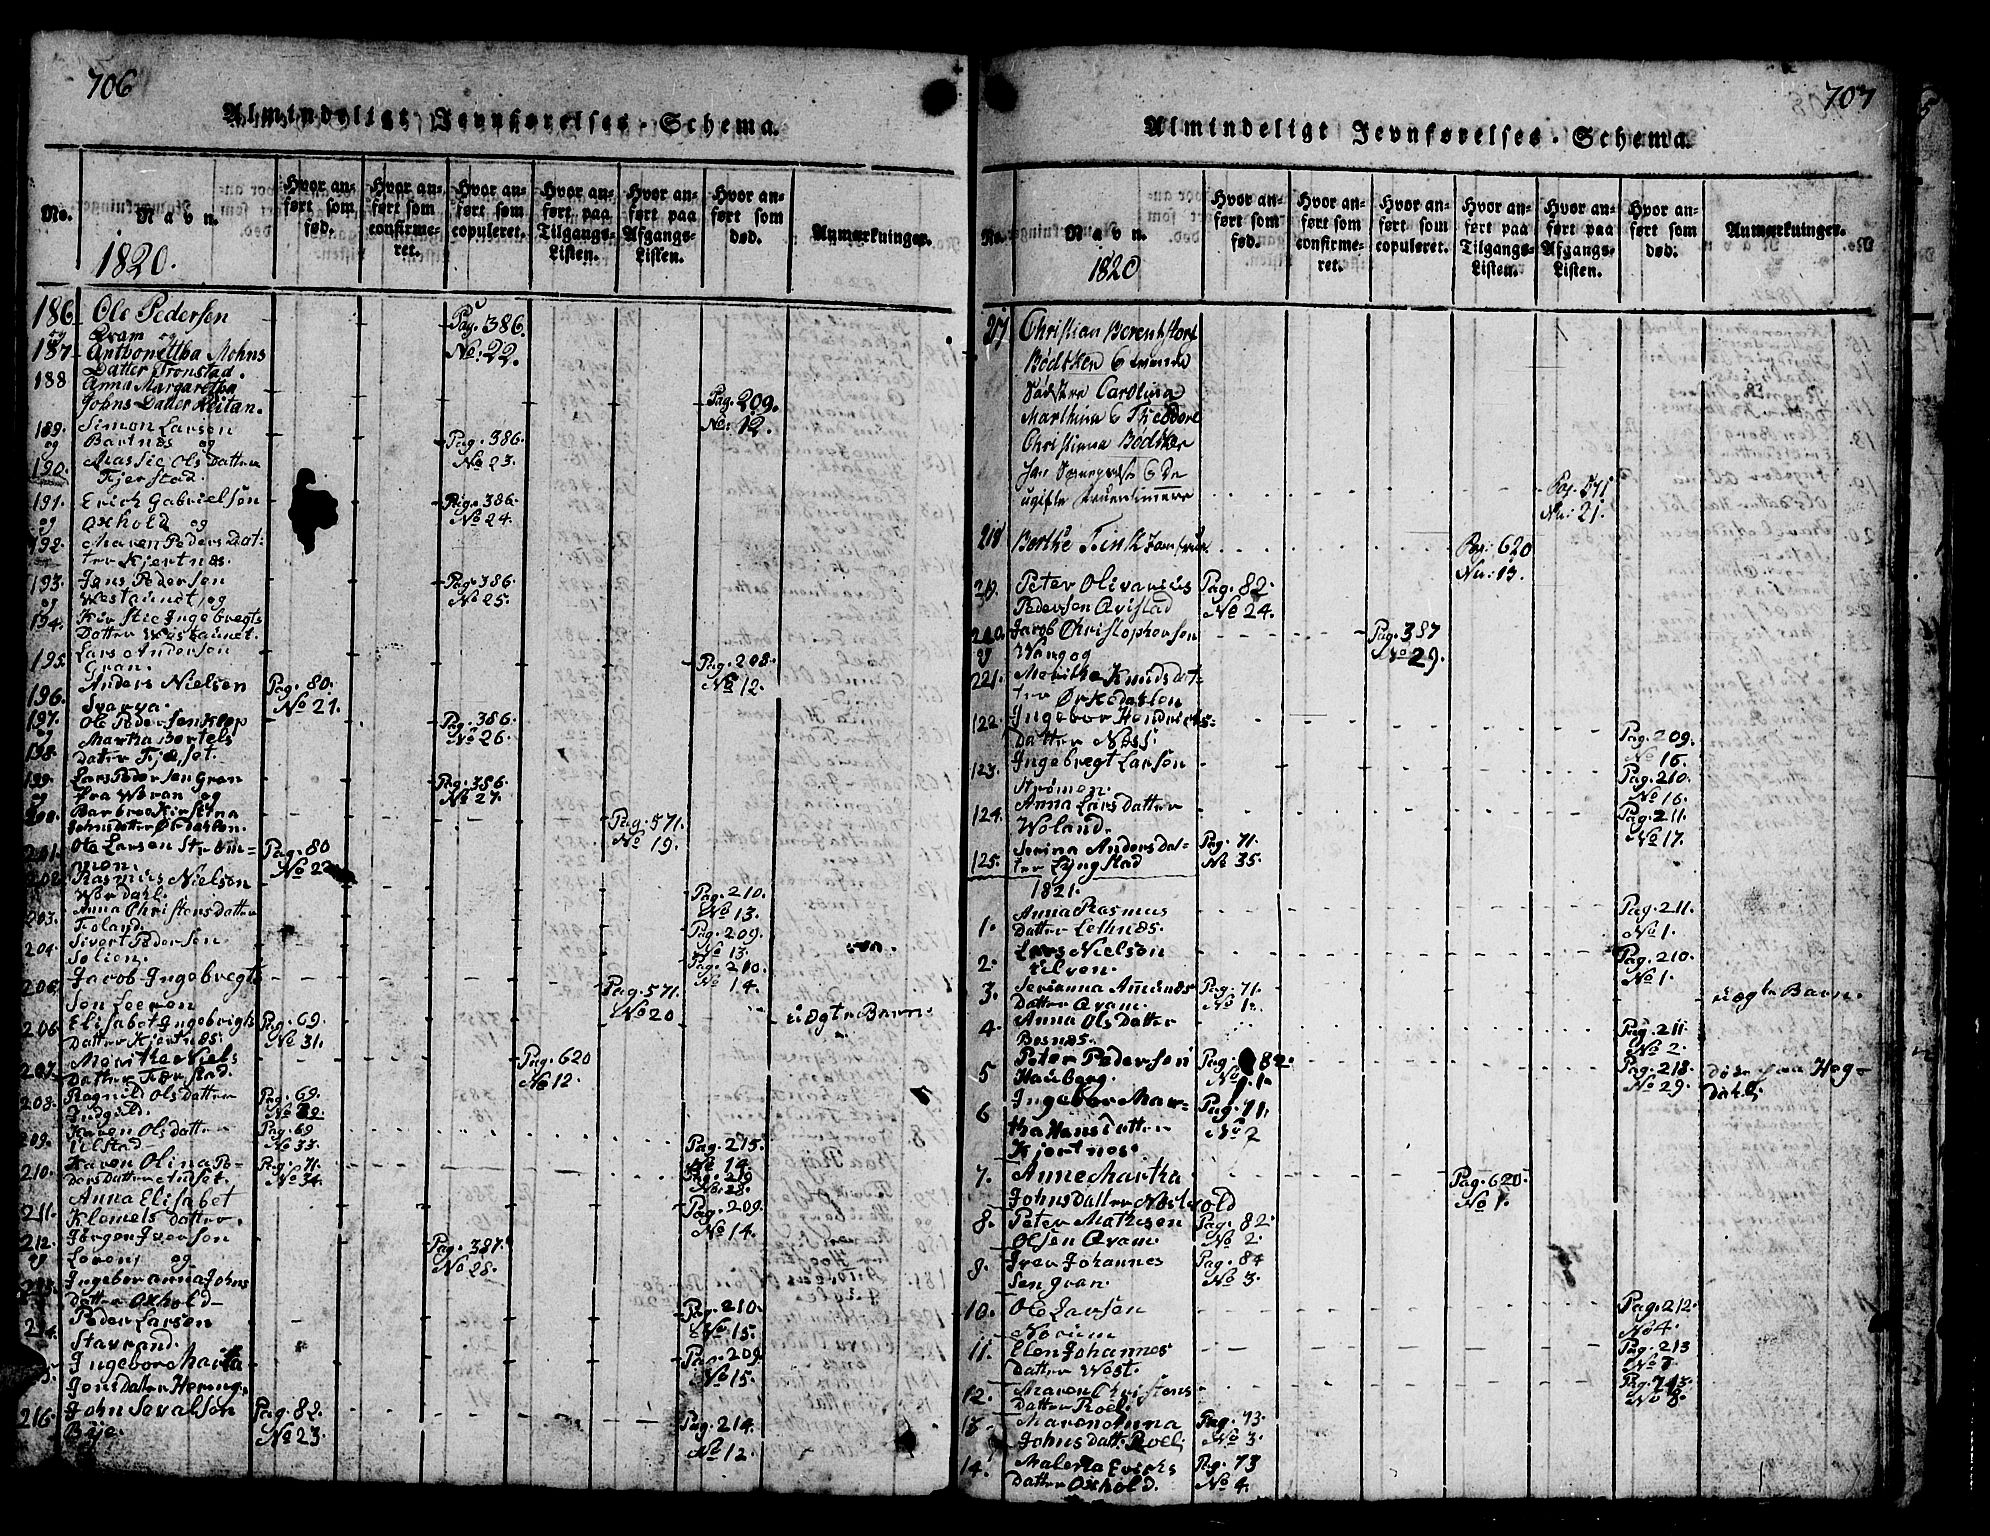 706
Almindeligt Jevnførelses-Schema.
No.
Navn.
1820.
Hvor anført som fød.
Hvor anført som confirmeret.
Hvor anført som copuleret.
Hvor anført paa Tilgangs-Listen.
Hvor anført paa Afgangs-Listen.
Hvor anført som død.
Anmærkninger.
186 Ole Pedersen Pag. 386.
og Qvam og
187 Anthonettha Mohns No: 22.
Datter Tronstad.
188 Anna Margaretha
Johns Datter Reitan. Pag. 209.
No: 12.
189. Simon Larsen
og Bartnæs og Pag. 386.
190. Massie Ols Datter No 23.
Fjerstad.
191. Erich Gabrielsen Pag. 386.
og Oxhold og No 24.
192. Maren Peders Dat-
ter Kjertnæs.
193. Jens Pedersen Pag. 386.
og Westaunet, og No 25.
194. Kirstie Ingebregts
Datter Westaunet.
195. Lars Andersen
Gran. Pag. 208.
No 12.
196. Anders Nielsen Pag. 80.
Svarva. No 21.
197. Ole Pedersen Klep Pag. 386.
og Martha Bertels No 26.
198. Datter Fjeset.
199. Lars Pedersen Gran Pag. 386.
og fra Woran og No 27.
200. Barbroe Kirstina
Johnsdatter Ørkdahlen. Pag. 571.
No 19.
201. Ole Larsen Strøm- Pag. 80
men. No 22
202. Rasmus Nielsen Pag. 210.
Wordahl. No 13.
203. Anna Christens Datter Pag. 209.
Foland. No 13.
204. Sivert Pedersen Pag. 210.
Solien. No 14.
205. Jacob Ingebregt- Pag. 571.
sen Loeren No 20
206 Elisabet Ingebrigts Pag. 69. uægte Barn.
Datter Kjertnæs. No 31.
207. Merithe Niels Pag. 620
Datter Fjerstad. No 12.
208. Ragnild Ols Datter Pag. 69.
209. Karen Ols datter Pag. 69 Pag. 215.
Tilstad No 33. No 14.
210. Karen Olina Pe- Pag. 71. Pag. 216
ders Datter Auset. No 34. No: 28.
211. Anna Elisabet
Klemets datter. Pag. 209.
No 14.
212. Jørgen Iversen Pag. 387.
og Loren, og No 28.
213. Ingeboranna Johns
Datter Oxhold
214. Peder Larsen Pag. 210.
Stavrand. No 15.
Ingebor Marta Pag. 209
Jonsdatter No 15.
216. John Sevalsen Pag. 82. Pag. 214.
Bye. No 23. No 12.
707
Almindeligt Jevnførelses-Schema.
No.
Navn.
1820
Hvor anført som fød.
Hvor anført som confirmeret.
Hvor anført som copuleret.
Hvor anført paa Tilgangs-Listen.
Hvor anført paa Afgangs-Listen.
Hvor anført som død.
Anmærkninger.
217 Christian Berenth
Bødtker
Carolina
Marthina & Theodore
Christianna Bødtker
ugifte Pag. 571
No: 21.
218 Berthe Fink Jomfrue Pag: 620
No: 13.
219. Peter Olivarius Pag. 82.
Pedersen Qvistad No 24.
220 Jacob Christophersen Pag. 387
og Wang og No 29.
221. Merithe Knudsdat-
ter Ørkedalen
122. Ingebor Hendrichs-
Datter Næss. Pag. 209.
No 16.
123. Ingebregt Larsen Pag. 210.
Strømen. No 16.
124. Anna Lars datter Pag. 211.
Woland. No 17.
125. Serina Andersdat- Pag. 71.
ter Lyngstad No 35.
1821.
1. Anna Rasmus Pag. 211.
Datter Lethnæs. No 1.
2. Lars Nielsen Pag. 210.
Elven. No 1.
3. Serianna Amunds Pag. 71. uægte Barn.
Datter Qvam. No 1.
4. Anna Ols Datter Pag. 211
Bosnæs. No 2.
5 Peter Pedersen Pag. 82. Pag. 218.
Hauberg. No 1. No 29.
6 Ingebor Mar- Pag. 71.
tha Hans Datter No 2
Kjertnæs.
7. Anne Martha Pag. 620.
Johns Datter Mosl vold No 1.
8. Peter Mathisen Pag. 82.
Olsen Qvam. No 2.
9. Iver Johannes Pag. 84
sen Gran. No 3.
10. Ole Larsen Pag. 212.
Norum No 4.
11. Elen Johannes Pag. 213
Datter West.
12. Maren Christens
Datter Roel. No 8.
13 Maren Anna Pag. 73.
Johns datt. Roel. No 3.
14. Malena Erichs Pag. 73
Datter Oxhold. No 4.